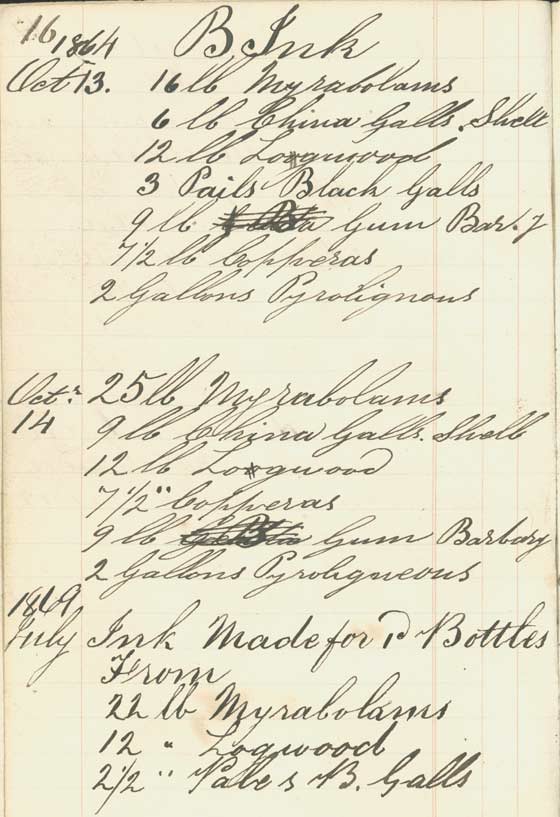 16 1864 B Ink
Oct 13. 16 lb Myrabolams
6 lb China Galls. Shell
12 lb Logwood
3 Pails Black Galls
9 lb Gum Bar.y
7 1/2 lb Copperas
2 Gallons Pyrolignous
Octr 14 25 lb Myrabolams
9 lb China Galls. Shell
12 lb Logwood
7 1/2 " Copperas
9 lb Gum Barbary
2 Gallons Pyroligneous
1869
July Ink Made for 1d Bottles
From
22 lb Myrabolams
12 " Logwood
2 1/2 " B. Galls